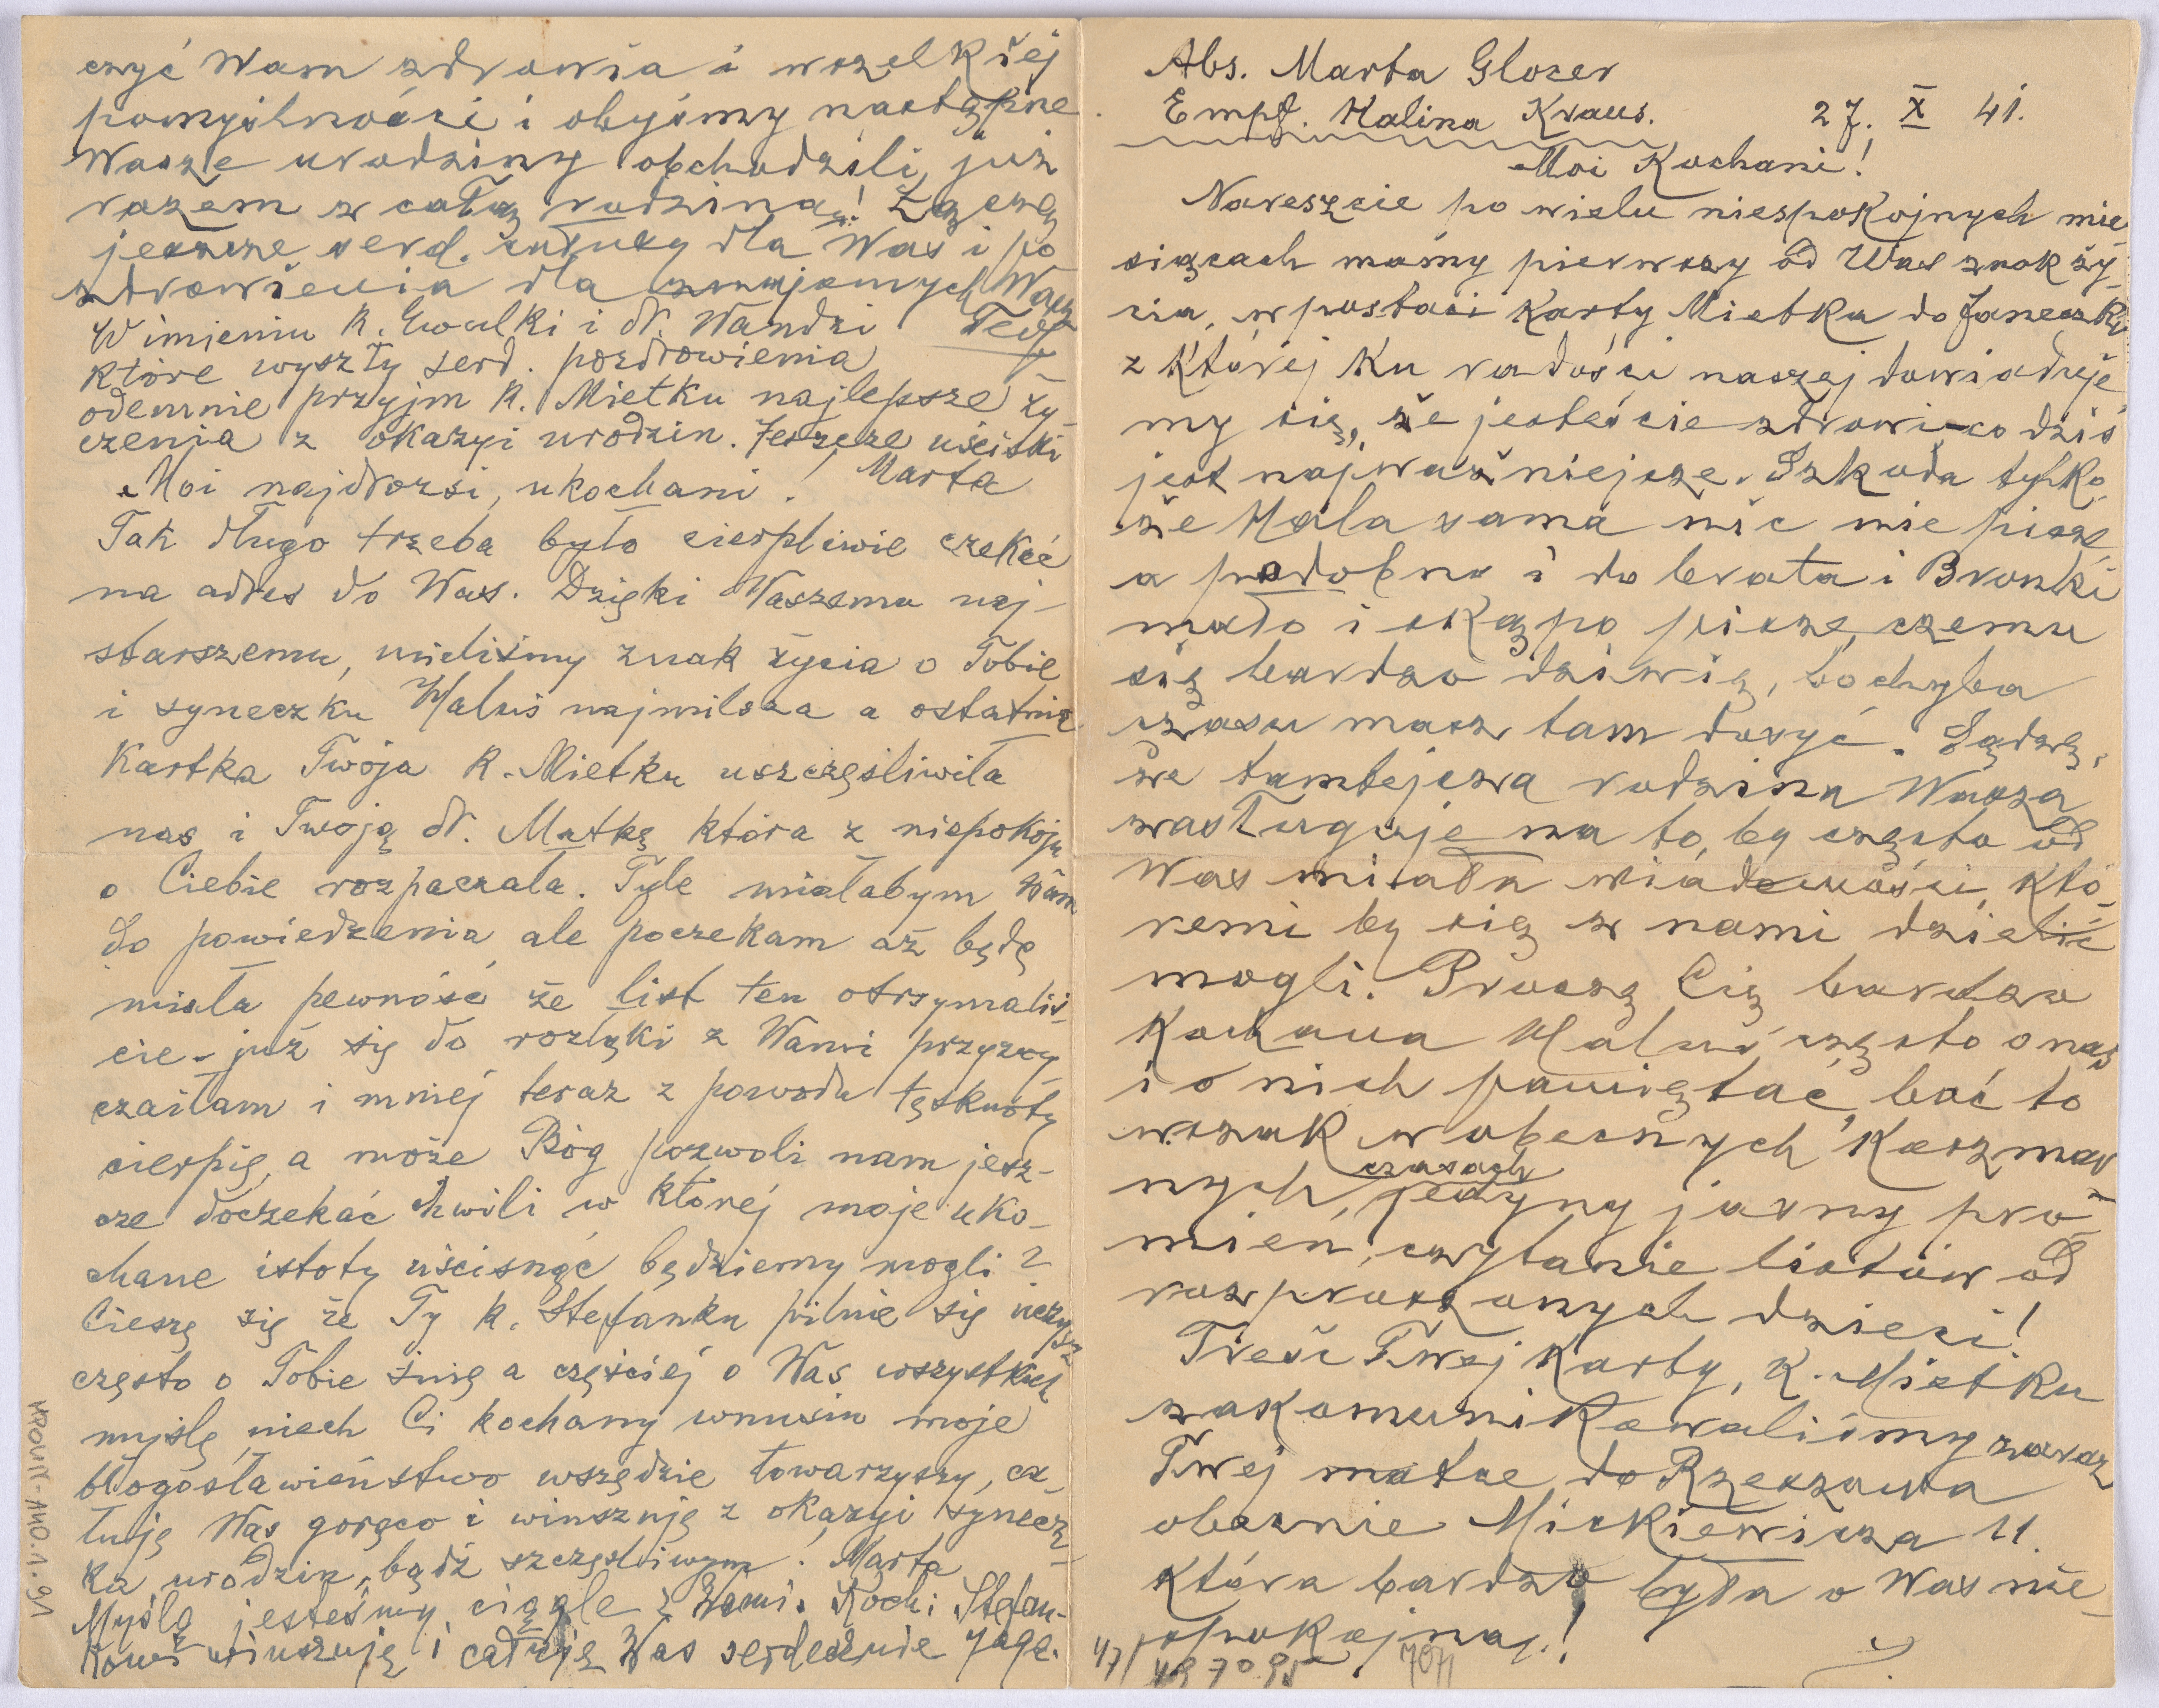 czyć Wam zdrowia i wszelkiej
pomyślności i obyśmy następne
Wasze urodziny obchodzili już
razem z całą rodziną! Łączę
jeszcze serd. całusy dla Was i po
zdrowienia dla znajomych Wasz
W imieniu k. Ewulki i dr. Wandzi
które wyszły serd. pozdrowienia
odemnie przyjm k. Mietku najlepsze ży
czenia z okazyi urodzin. Jeszcze uściski
Marta
Moi najdrożsi, ukochani!
Tak długo trzeba było cierpliwie czekać
na adres do Was. Dzięki Waszemu naj-
starszemu, mieliśmy znak życia o Tobie
i syneczku Haluś najmilsza a ostatnia
Kartka Twoja k. Mietku uszczęśliwiła
nas i Twoją dr. Matkę która z niepokoju
o Ciebie rozpaczała. Tyle miałabym Wam
do powiedzenia ale poczekam aż będę
miała pewność że list ten otrzymaliś-
cie - już się do rozłąki z Wami przyzwy
czaiłam i mniej teraz z powodu tęsknoty
cierpię, a może Bóg pozwoli nam jesz-
cze doczekać chwili w której moje uko-
chane istoty uścisnąć będziemy mogli?
Cieszę się że Ty k. Stefanku pilnie się uczysz
często o Tobie śnię a częściej o Was wszystkich
myślę niech Ci kochany wnusiu moje
błogosławieństwo wszędzie towarzyszy, ca-
łuję Was gorąco i winszuję z okazyi synecz-
ka urodzin, bądź szczęśliwym! Marta
Myślą jesteśmy ciągle z Wami. Koch: Stefan-
kowi winszuję i całuję Was serdecznie
MPOLIN-A40.1.91
Abs. Marta Glozer
Empf. Halina Kraus. 27. X 41.
Moi Kochani!
Nareszcie po wielu niespokojnych mie
siącach mamy pierwszy od Was znak ży-
cia, w postaci Karty Mietka do Janeczki
z Której Ku radości naszej dowiaduje
my się, że jesteście zdrowi - co dziś
jest najważniejsze. Szkoda tylko
że Hala sama nic nie pisze,
a podobno i do brata i Bronki
mało i skąpo pisze, czemu
się bardzo dziwię, bo chyba
czasu masz tam dosyć. Sądzę,
że tamtejsza rodzina Wasza
zasługuje na to, by często od
Was miała wiadomości, któ-
remi by się z nami dzielić
mogli. Proszę Cię bardzo
Kochana Haluś często o nas
i o nich pamiętać, boć to
wszak w obecnych Koszmar
nych, czasach jedyny jasny pro-
mień, czytanie listów od
rozproszonych dzieci!
Treść Twej Karty, K. Mietku
zakomunikowaliśmy zaraz
Twej matce do Rzeszowa
obecnie Mickiewicza 11.
Która bardzo była o Was nie-
spokojną.!